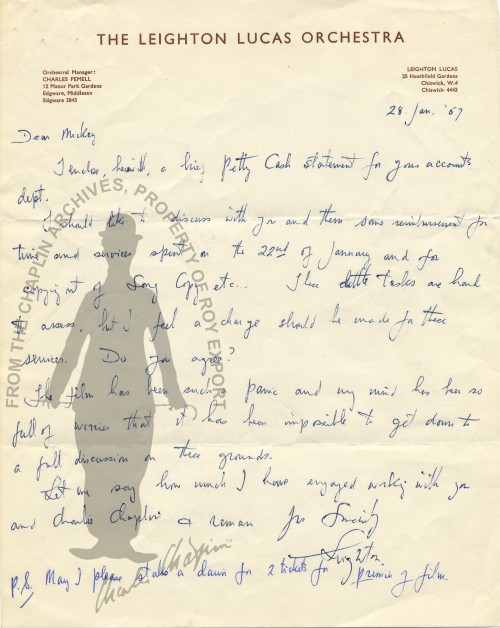 THE LEIGHTON LUCAS ORCHESTRA
Orchestral Manager:
CHARLES PEMELL
13 Manor Park Gardens
Edgware, Middlesex
Edgware 3845
LEIGHTON LUCAS
25 Heathfield Gardens
Chiswick, W.4
Chiswick 4443
28. Jan. '67
Dear Mickey
I enclose, herewith, a brief Petty Cash statement for your accounts
dept.
I should like to discuss with you and them some reimbursement for
time and services spent on the 22nd of January and for
copyright of Song Copy etc... These little tasks are hard
to assess, but I feel a charge should be made for these
services. Do you agree?
The film has been such a panic and my mind has been so
full of worries that it has been impossible to get down to
a full discussion on these grounds.
Let me say how much I have enjoyed working with you
and Charles Chaplin & remain Yrs Sincerely
Leighton.
P.S. May I please stake a claim for 2 tickets for premier of film.
FROM THE CHAPLIN ARCHIVES, PROPERTY OF ROY EXPORT
Charles Chaplin